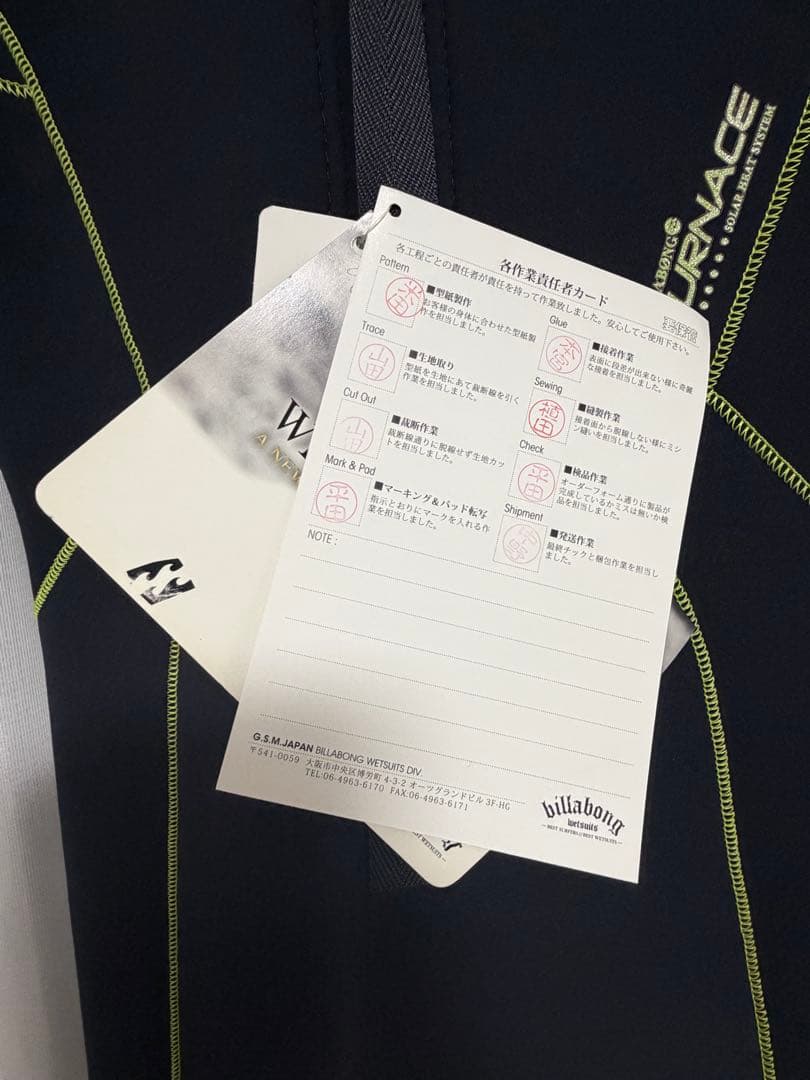 FURNACE
SOLAR HEAT SYSTEM
各作業責任者カード
各工程ごとの責任者が責任を持って作業致しました。安心してご使用下さい。
Pattern
■型紙製作
お客様の身体に合わせた型紙製
作を担当しました。
Trace
山田
■生地取り
型紙を生地にあて裁断線を引く
作業を担当しました。
Cut Out
山田
■裁断作業
裁断線通りに脱線せず生地カッ
トを担当しました。
Mark & Pad
平田
■マーキング&パッド転写
指示とおりにマークを入れる作
業を担当しました。
Glue
本宮
■接着作業
表面に段差が出来ない様に奇麗
な接着を担当しました。
Sewing
植田
■縫製作業
接着面から脱線しない様にミシ
ン縫いを担当しました。
Check
平田
■検品作業
オーダーフォーム通りに製品が
完成しているかミスは無いか検
品を担当しました。
Shipment
■発送作業
最終チックと梱包作業を担当し
ました。
NOTE :
G.S.M.JAPAN BILLABONG WETSUITS DIV.
〒541-0059 大阪市中央区博労町 4-3-2 オーツグランドビル 3F-HG
TEL:06-4963-6170 FAX:06-4963-6171
billabong
wetsuits
BEST SURFERS@BEST WETSUITS
A NEW